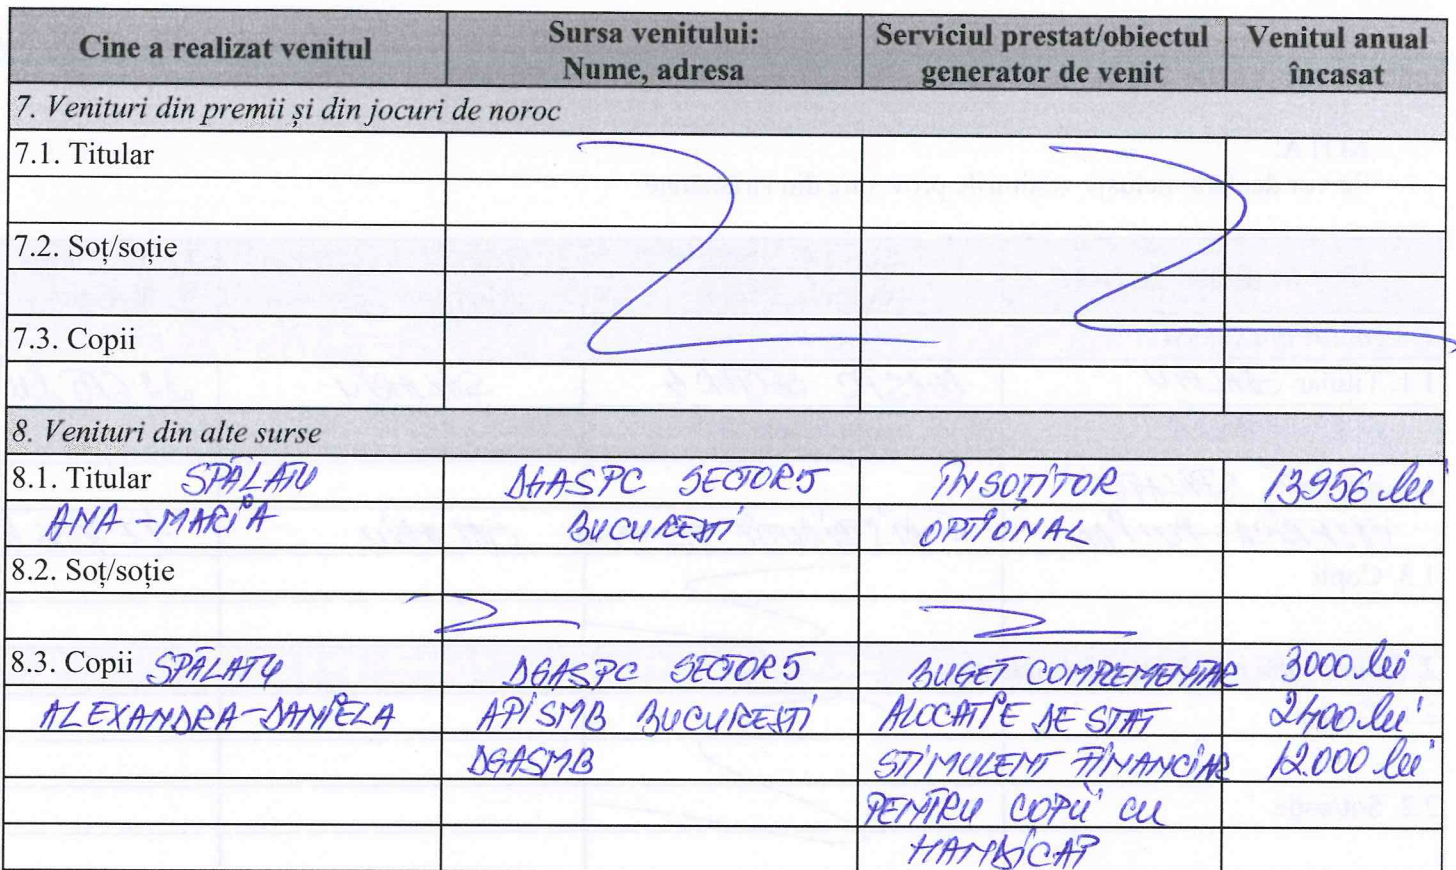 Cine a realizat venitul
Sursa venitului:
Nume, adresa
Serviciul prestat/obiectul
generator de venit
Venitul anual
încasat
7. Venituri din premii și din jocuri de noroc
7.1. Titular
7.2. Soț/soție
7.3. Copii
8. Venituri din alte surse
8.1. Titular SPĂLATU DGASPC SECTOR 5 ÎNSOȚITOR 13956 lei
ANA-MARIA BUCUREȘTI OPȚIONAL
8.2. Soț/soție
8.3. Copii SPĂLATU DGASPC SECTOR 5 BUGET COMPLEMENTAR 3000 lei
ALEXANDRA-DANIELA APISMB BUCUREȘTI ALOCAȚIE DE STAT 2400 lei
DGASMB STIMULENT FINANCIAR 12.000 lei
PENTRU COPII CU
HANDICAP